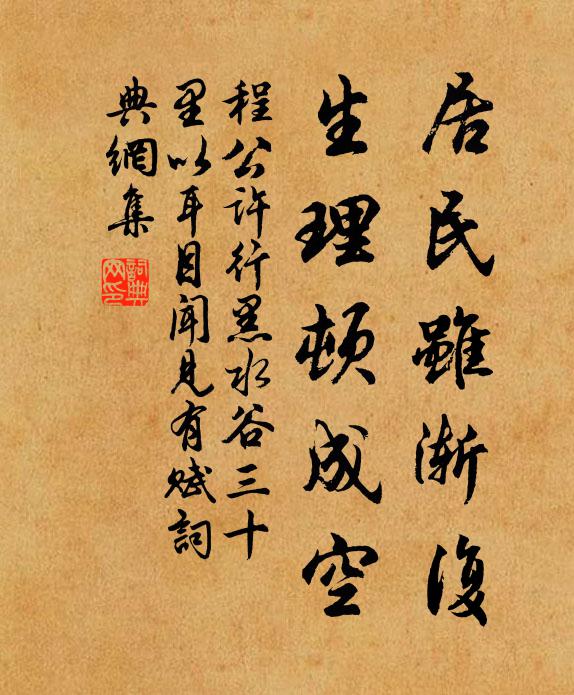 居民雖漸復
生理頓成空
程公許行黑水谷三十
里以耳目聞見有賦詞
典網集
詞典
网印